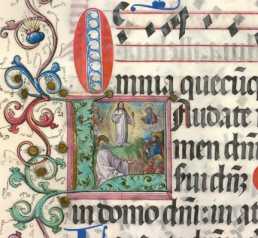 Omnia quecūq
Laudate
men dn̄i
ſerui dn̄z
in domo dn̄i: in at